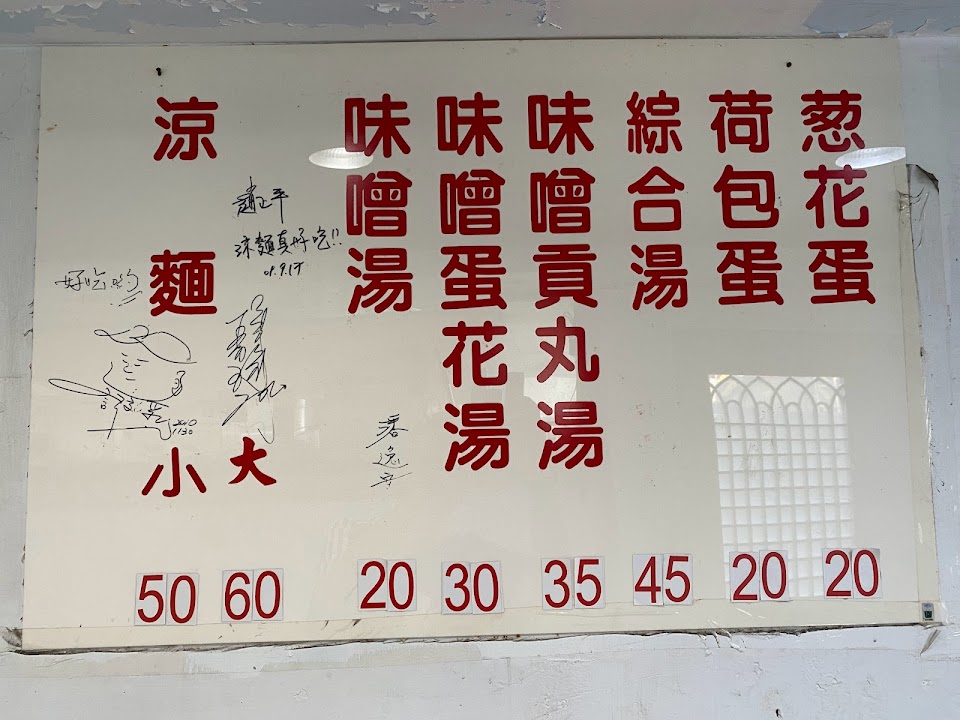 涼麵 小 50
大 60
味噌湯 20
味噌蛋花湯 30
味噌貢丸湯 35
綜合湯 45
荷包蛋 20
葱花蛋 20
趙正平
涼麵真好吃!!
好吃喲!!